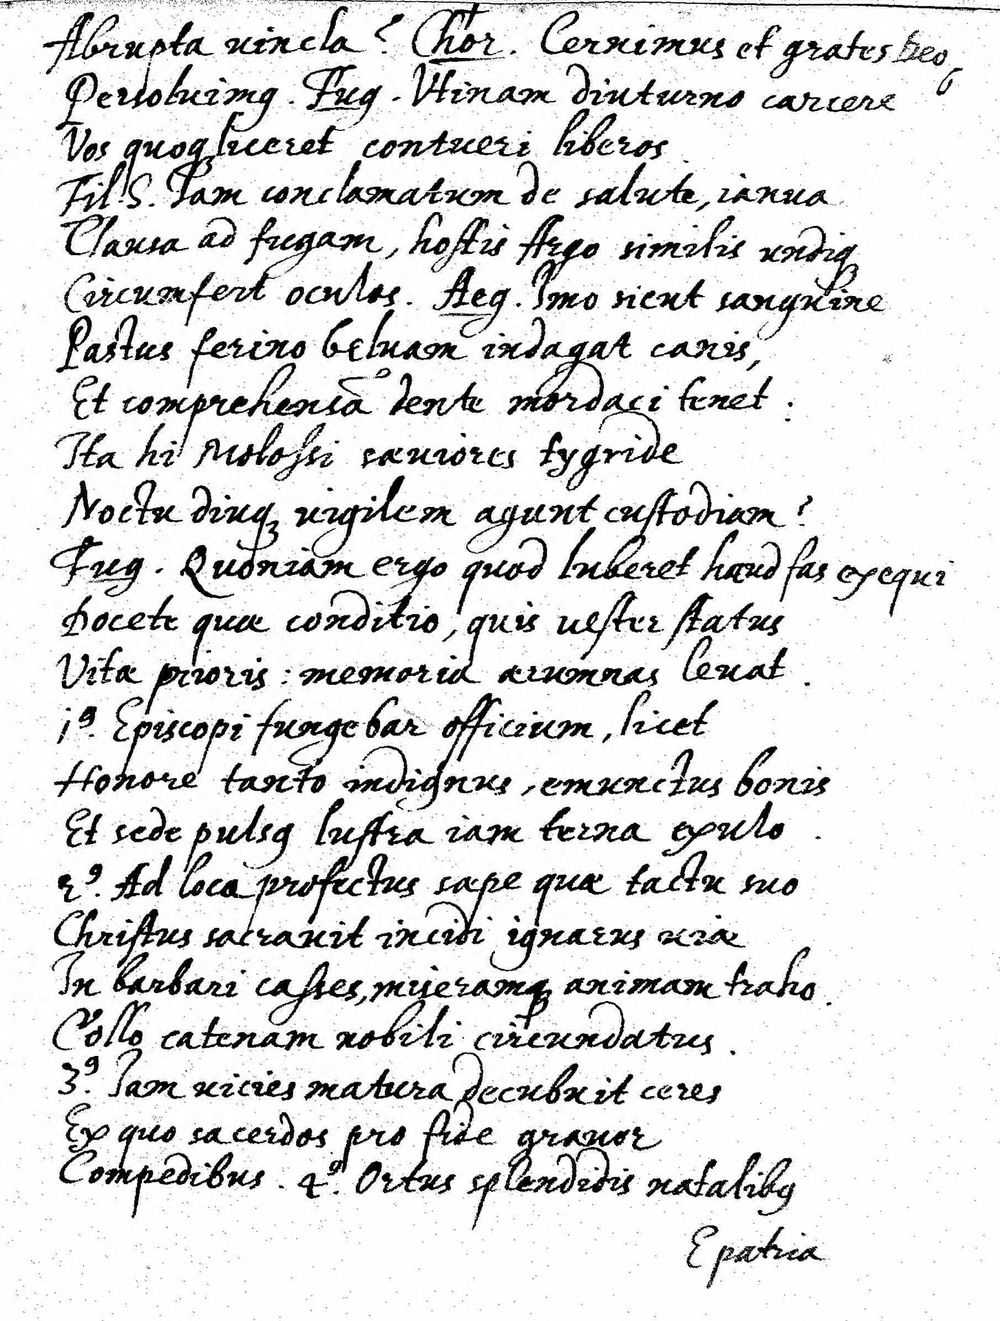 Abrupta uincla? Chor. Cernimus et grates Deo
Persoluimꝯ. Fug. Vtinam diuturno carcere
Vos quoqꝫ liceret contueri liberos
Fil. S. Iam conclamatum de salute, ianua
Clausa ad fugam, hostis Argo similis undiqꝫ
Circumfert oculos. Aeg. Imo sicut sanguine
Pastus ferino beluam indagat canis,
Et comprehensā dente mordaci tenet.
Ita hi Molossi sæuiores tygride
Noctu diuqꝫ uigilem agunt custodiam?
Fug. Quoniam ergo quod luberet haud fas exequi
Docete quæ conditio, quis uester status
Vitæ prioris: memoria ærumnas leuat.
1ꝯ. Episcopi fungebar officium, licet
Honore tanto indignus, emunctus bonis
Et sede pulsꝯ lustra iam terna exulo.
2ꝯ. Ad loca profectus sæpe quæ tactu suo
Christus sacrauit incidi ignarus uiæ
In barbari casses, miseramqꝫ animam traho.
Collo catenam nobili circundatus.
3ꝯ. Iam uicies matura decubuit ceres
Ex quo sacerdos pro fide grauor
Compedibus. 4ꝯ. Ortus splendidis natalibꝯ
E patria